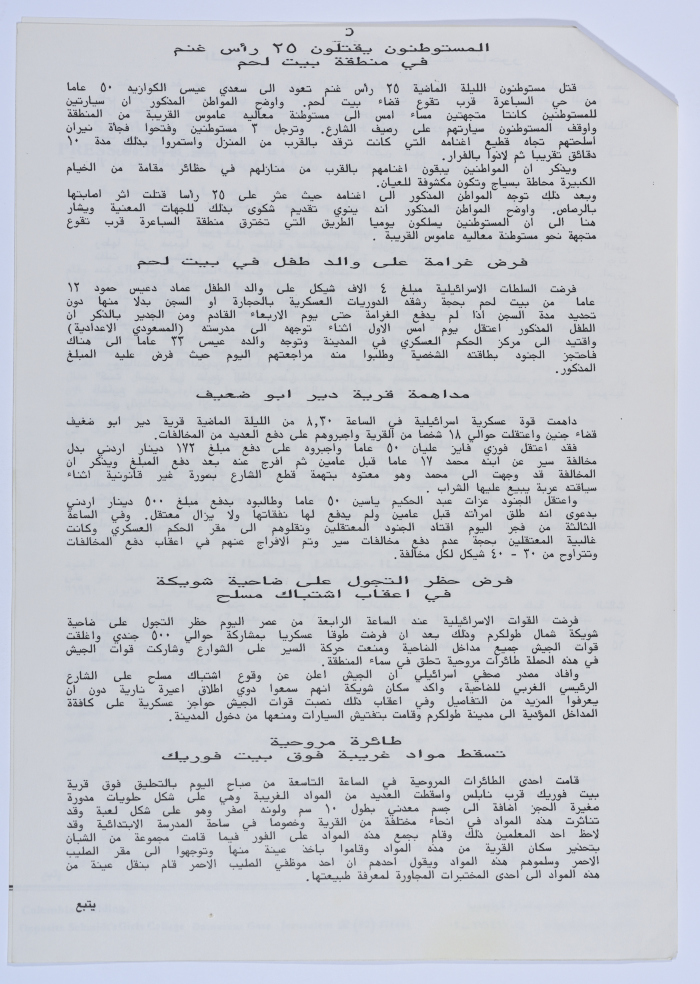 المستوطنون يقتلون ٢٥ رأس غنم
في منطقة بيت لحم
قتل مستوطنون الليلة الماضية ٢٥ راس غنم تعود الى سعدي عيسى الكوازبه ٥٠ عاما
من حي السباعرة قرب تقوع قضاء بيت لحم. واوضح المواطن المذكور ان سيارتين
للمستوطنين كانتا متجهتين مساء امس الى مستوطنة معاليه عاموس القريبة من المنطقة
واوقف المستوطنون سيارتهم على رصيف الشارع. وترجل ٣ مستوطنين وفتحوا فجأة نيران
اسلحتهم تجاه قطيع اغنامه التي كانت ترقد بالقرب من المنزل واستمروا بذلك مدة ١٠
دقائق تقريبا ثم لاذوا بالفرار.
ويذكر ان المواطنين يبقون اغنامهم بالقرب من منازلهم في حظائر مقامة من الخيام
الكبيرة محاطة بسياج وتكون مكشوفة للعيان.
وبعد ذلك توجه المواطن المذكور الى اغنامه حيث عثر على ٢٥ رأسا قتلت اثر اصابتها
بالرصاص. واوضح المواطن المذكور انه ينوي تقديم شكوى بذلك للجهات المعنية ويشار
هنا الى ان المستوطنين يسلكون يوميا الطريق التي تخترق منطقة السباعرة قرب تقوع
متجهة نحو مستوطنة معاليه عاموس القريبة .
فرض غرامة على والد طفل في بيت لحم
فرضت السلطات الاسرائيلية مبلغ ٤ الاف شيكل على والد الطفل عماد دعيس حمود ١٢
عاما من بيت لحم بحجة رشقه الدوريات العسكرية بالحجارة او السجن بدلا منها دون
تحديد مدة السجن اذا لم يدفع الغرامة حتى يوم الاربعاء القادم ومن الجدير بالذكر ان
الطفل المذكور اعتقل يوم امس الاول اثناء توجهه الى مدرسته (المسعودي الاعدادية)
واقتيد الى مركز الحكم العسكري في المدينة وتوجه والده عيسى ٣٣ عاما الى هناك
فاحتجز الجنود بطاقته الشخصية وطلبوا منه مراجعتهم اليوم حيث فرض عليه المبلغ
المذكور.
مداهمة قرية دير ابو ضعيف
داهمت قوة عسكرية اسرائيلية في الساعة ٨,٣٠ من الليلة الماضية قرية دير ابو ضعيف
قضاء جنين واعتقلت حوالي ١٨ شخصا من القرية واجبروهم على دفع العديد من المخالفات.
فقد اعتقل فوزي فايز عليان ٥٠ عاما واجبروه على دفع مبلغ ١٧٢ دينار اردني بدل
مخالفة سير عن ابنه محمد ١٧ عاما قبل عامين ثم افرج عنه بعد دفع المبلغ ويذكر ان
المخالفة قد وجهت الى محمد وهو معتوه بتهمة قطع الشارع بصورة غير قانونية اثناء
سياقته عربة يبيع عليها الشراب .
واعتقل الجنود عزات عبد الحكيم ياسين ٥٠ عاما وطالبوه بدفع مبلغ ٥٠٠ دينار اردني
بدعوى انه طلق امراته قبل عامين ولم يدفع لها نفقاتها ولا يزال معتقل. وفي الساعة
الثالثة من فجر اليوم اقتاد الجنود المعتقلين ونقلوهم الى مقر الحكم العسكري وكانت
غالبية المعتقلين بحجة عدم دفع مخالفات سير وتم الافراج عنهم في اعقاب دفع المخالفات
وتتراوح من ٣٠ - ٤٠ شيكل لكل مخالفة.
فرض حظر التجول على ضاحية شويكة
في اعقاب اشتباك مسلح
فرضت القوات الاسرائيلية عند الساعة الرابعة من عصر اليوم حظر التجول على ضاحية
شويكة شمال طولكرم وذلك بعد ان فرضت طوقا عسكريا بمشاركة حوالي ٥٠٠ جندي واغلقت
قوات الجيش جميع مداخل الضاحية ومنعت حركة السير على الشوارع وشاركت قوات الجيش
في هذه الحملة طائرات مروحية تحلق في سماء المنطقة.
وافاد مصدر صحفي اسرائيلي ان الجيش اعلن عن وقوع اشتباك مسلح على الشارع
الرئيسي الغربي للضاحية، واكد سكان شويكة انهم سمعوا دوي اطلاق اعيرة نارية دون ان
يعرفوا المزيد من التفاصيل وفي اعقاب ذلك نصبت قوات الجيش حواجز عسكرية على كافة
المداخل المؤدية الى مدينة طولكرم وقامت بتفتيش السيارات ومنعها من دخول المدينة.
طائرة مروحية
تسقط مواد غريبة فوق بيت فوريك
قامت احدى الطائرات المروحية في الساعة التاسعة من صباح اليوم بالتحليق فوق قرية
بيت فوريك قرب نابلس واسقطت العديد من المواد الغريبة وهي على شكل حلويات مدورة
صغيرة الحجز اضافة الى جسم معدني بطول ١٠ سم ولونه اصفر وهو على شكل لعبة وقد
تناثرت هذه المواد في انحاء مختلفة من القرية وخصوصا في ساحة المدرسة الابتدائية وقد
لاحظ احد المعلمين ذلك وقام بجمع هذه المواد على الفور فيما قامت مجموعة من الشبان
بتحذير سكان القرية من هذه المواد وقاموا باخذ عينة منها وتوجهوا الى مقر الصليب
الاحمر وسلموهم هذه المواد ويقول أحدهم ان احد موظفي الصليب الاحمر قام بنقل عينة من
هذه المواد الى احدى المختبرات المجاورة لمعرفة طبيعتها.
يتبع